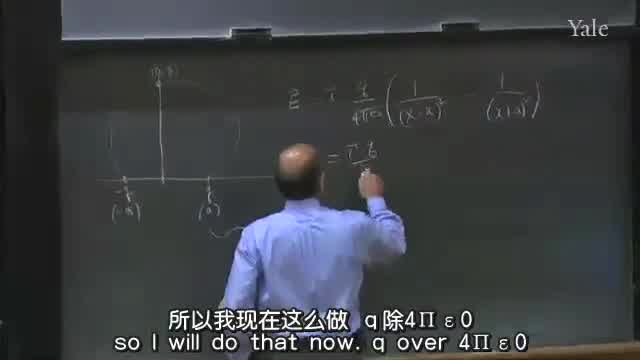 Yale
E = i q/4πε0 ( 1/(x-a)² - 1/(x+a)² )
= i q
(-a)
(a)
所以我现在这么做 q除4Π ε0
so I will do that now. q over 4Π ε0